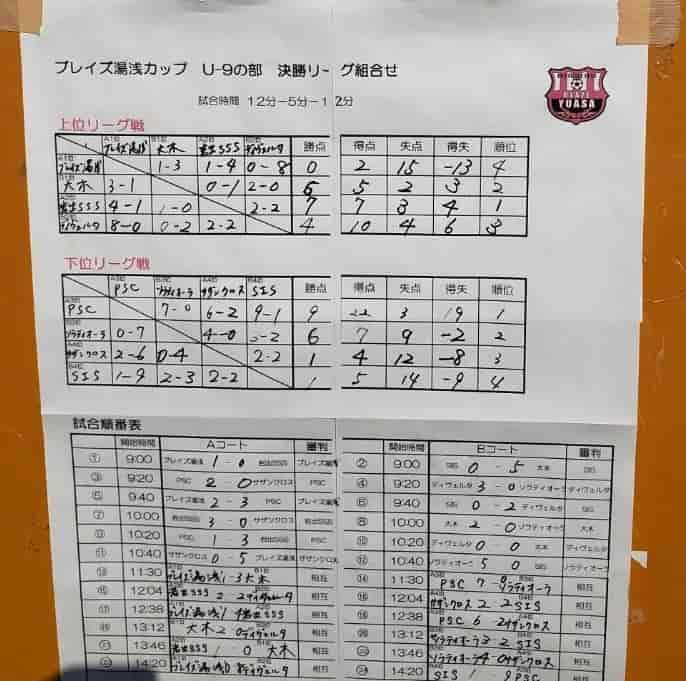 ブレイズ湯浅カップ U-9の部 決勝リーグ組合せ
YUASA
試合時間 12分-5分-12分
上位リーグ戦
ブレイズ湯浅 大木 岩出SSS ディヴェルタ 勝点 得点 失点 得失 順位
ブレイズ湯浅 1-3 1-4 0-8 0 2 15 -13 4
大木 3-1 0-1 2-0 6 5 2 3 2
岩出SSS 4-1 1-0 2-2 7 7 3 4 1
ディヴェルタ 8-0 0-2 2-2 4 10 4 6 3
下位リーグ戦
PSC ソラティオーラ サザンクロス SIS 勝点 得点 失点 得失 順位
PSC 7-0 6-2 9-1 9 22 3 19 1
ソラティオーラ 0-7 4-0 3-2 6 7 9 -2 2
サザンクロス 2-6 0-4 2-2 1 4 12 -8 3
SIS 1-9 2-3 2-2 1 5 14 -9 4
試合順番表
開始時間 Aコート 審判 開始時間 Bコート 審判
① 9:00 ブレイズ湯浅 1-0 岩出SSS ブレイズ湯浅 ② 9:00 SIS 0-5 大木 SIS
③ 9:20 PSC 2-0 サザンクロス PSC ④ 9:20 ディヴェルタ 3-0 ソラティオーラ ディヴェルタ
⑤ 9:40 ブレイズ湯浅 2-3 PSC ブレイズ湯浅 ⑥ 9:40 SIS 0-2 ディヴェルタ SIS
⑦ 10:00 岩出SSS 3-0 サザンクロス 岩出SSS ⑧ 10:00 大木 2-0 ソラティオーラ 大木
⑨ 10:20 PSC 1-3 岩出SSS PSC ⑩ 10:20 ディヴェルタ 0-0 大木 ディヴェルタ
⑪ 10:40 サザンクロス 0-5 ブレイズ湯浅 サザンクロス ⑫ 10:40 ソラティオーラ 5-0 SIS ソラティオーラ
⑬ 11:30 ブレイズ湯浅 1-3 大木 相互 ⑭ 11:30 PSC 7-0 ソラティオーラ 相互
⑮ 12:04 岩出SSS 2-2 ディヴェルタ 相互 ⑯ 12:04 サザンクロス 2-2 SIS 相互
⑰ 12:38 ブレイズ湯浅 1-4 岩出SSS 相互 ⑱ 12:38 PSC 6-2 サザンクロス 相互
⑲ 13:12 大木 2-0 ディヴェルタ 相互 ⑳ 13:12 ソラティオーラ 3-2 SIS 相互
㉑ 13:46 岩出SSS 1-0 大木 相互 13:46 ソラティオーラ 4-0 サザンクロス 相互
14:20 ブレイズ湯浅 0-8 ディヴェルタ 相互 ㉔ 14:20 SIS 1-9 PSC 相互